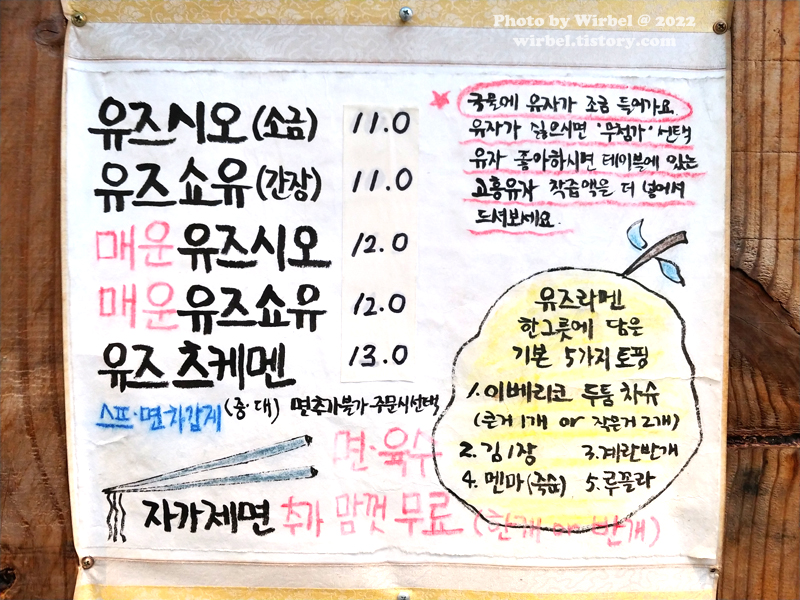 Photo by Wirbel @ 2022
wirbel.tistory.com
유즈시오 (소금) 11.0
유즈쇼유 (간장) 11.0
매운 유즈시오 12.0
매운 유즈쇼유 12.0
유즈 츠케멘 13.0
스프·면 차갑게 (중·대) 면추가불가 주문시선택
면·육수
자가제면 추가 맘껏 무료 (한개 or 반개)
국물에 유자가 조금 들어가요.
유자가 싫으시면 '무첨가' 선택
유자 좋아하시면 테이블에 있는
고흥유자 착즙액을 더 넣어서
드셔보세요.
유즈라멘
한그릇에 담은
기본 5가지 토핑
1. 이베리코 두툼 차슈
(큰거 1개 or 작은거 2개)
2. 김 1장 3. 계란반개
4. 멘마 (죽순) 5. 루꼴라